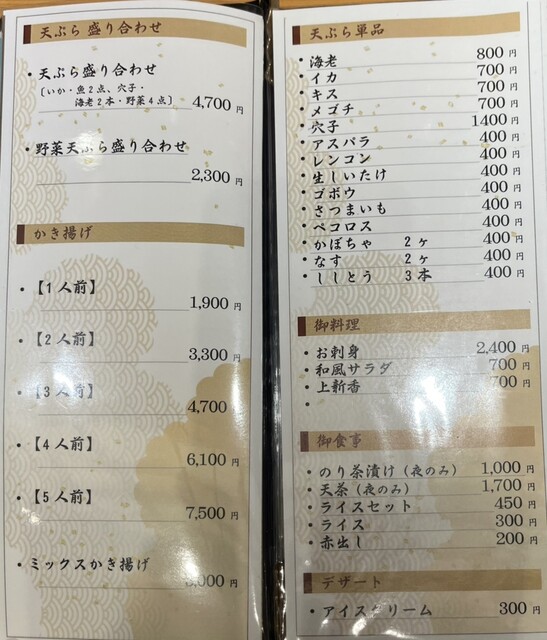 天ぷら 盛り合わせ
・天ぷら盛り合わせ
〔いか・魚2点、穴子・
海老2本・野菜4点〕 4,700円
・野菜天ぷら盛り合わせ
2,300円
かき揚げ
・【1人前】
1,900円
・【2人前】
3,300円
・【3人前】
4,700円
・【4人前】
6,100円
・【5人前】
7,500円
・ミックスかき揚げ
,000円
天ぷら単品
・海老 800円
・イカ 700円
・キス 700円
・メゴチ 700円
・穴子 1400円
・アスパラ 400円
・レンコン 400円
・生しいたけ 400円
・ゴボウ 400円
・さつまいも 400円
・ペコロス 400円
・かぼちゃ 2ヶ 400円
・なす 2ヶ 400円
・ししとう 3本 400円
御料理
・お刺身 2,400円
・和風サラダ 700円
・上新香 700円
・
御食事
・のり茶漬け(夜のみ) 1,000円
・天茶(夜のみ) 1,700円
・ライスセット 450円
・ライス 300円
・赤出し 200円
デザート
・アイスクリーム 300円